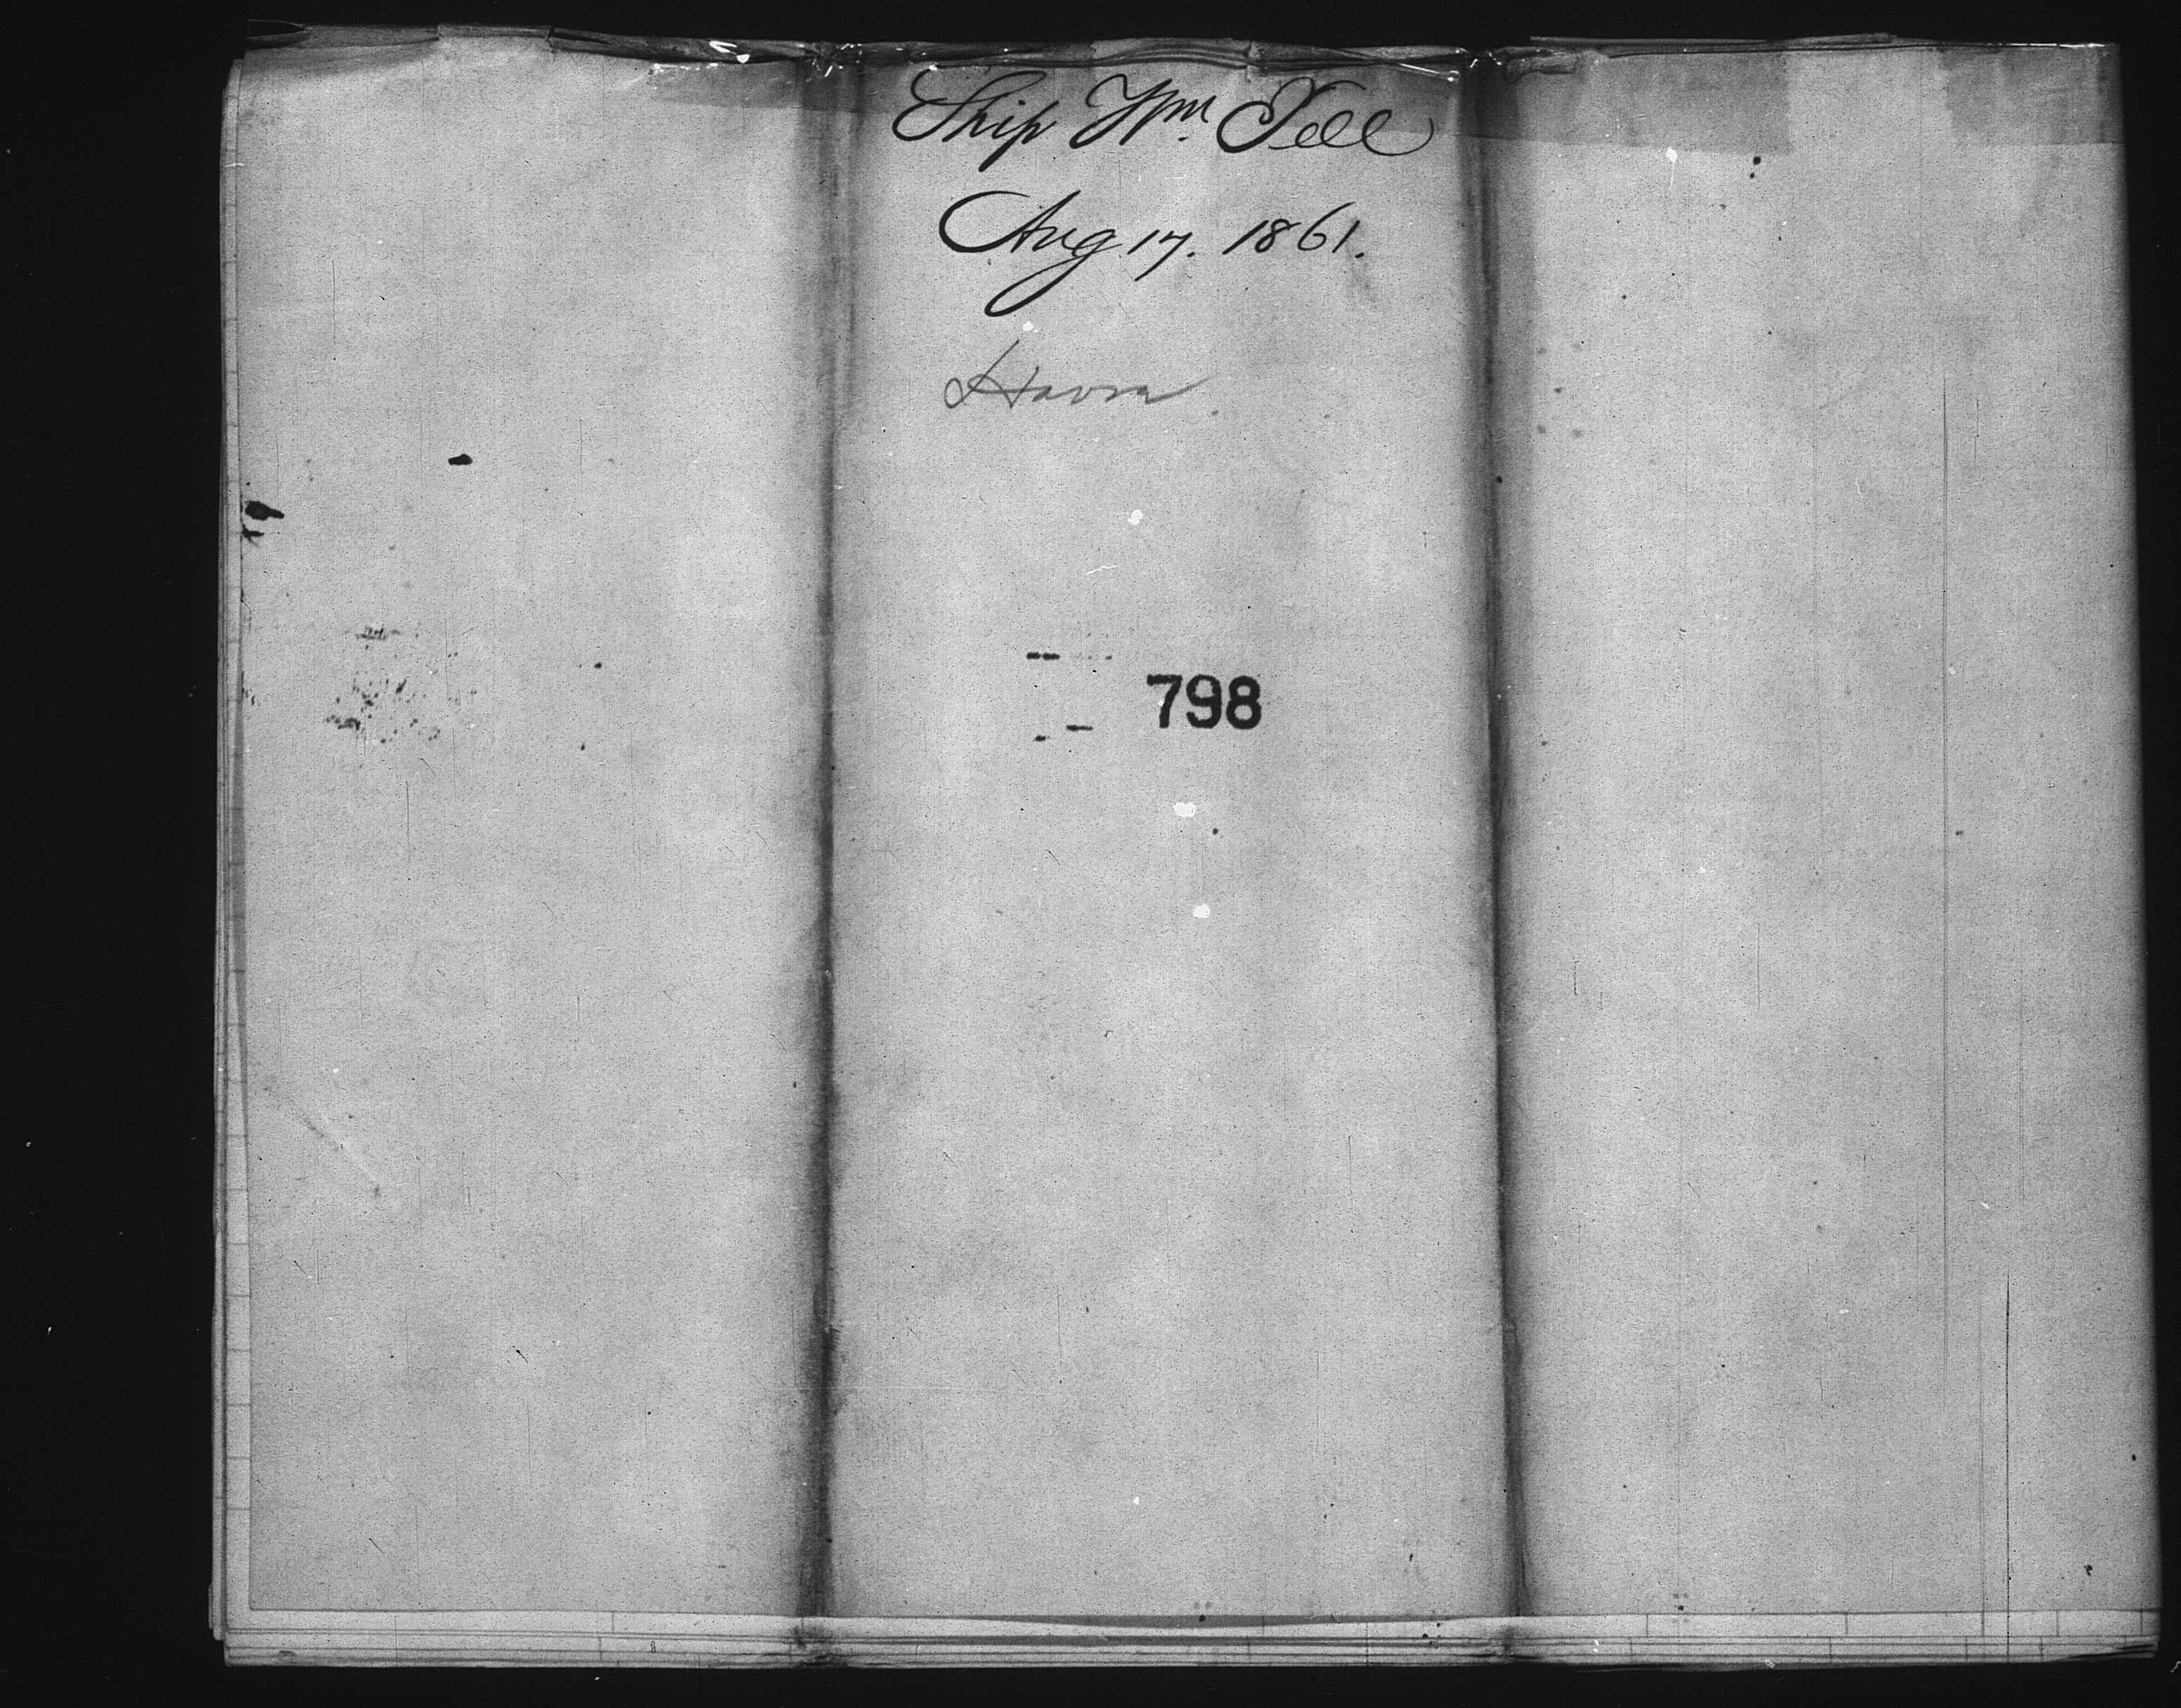 Ship Wm. Tell
Aug 17. 1861.
Havre
798